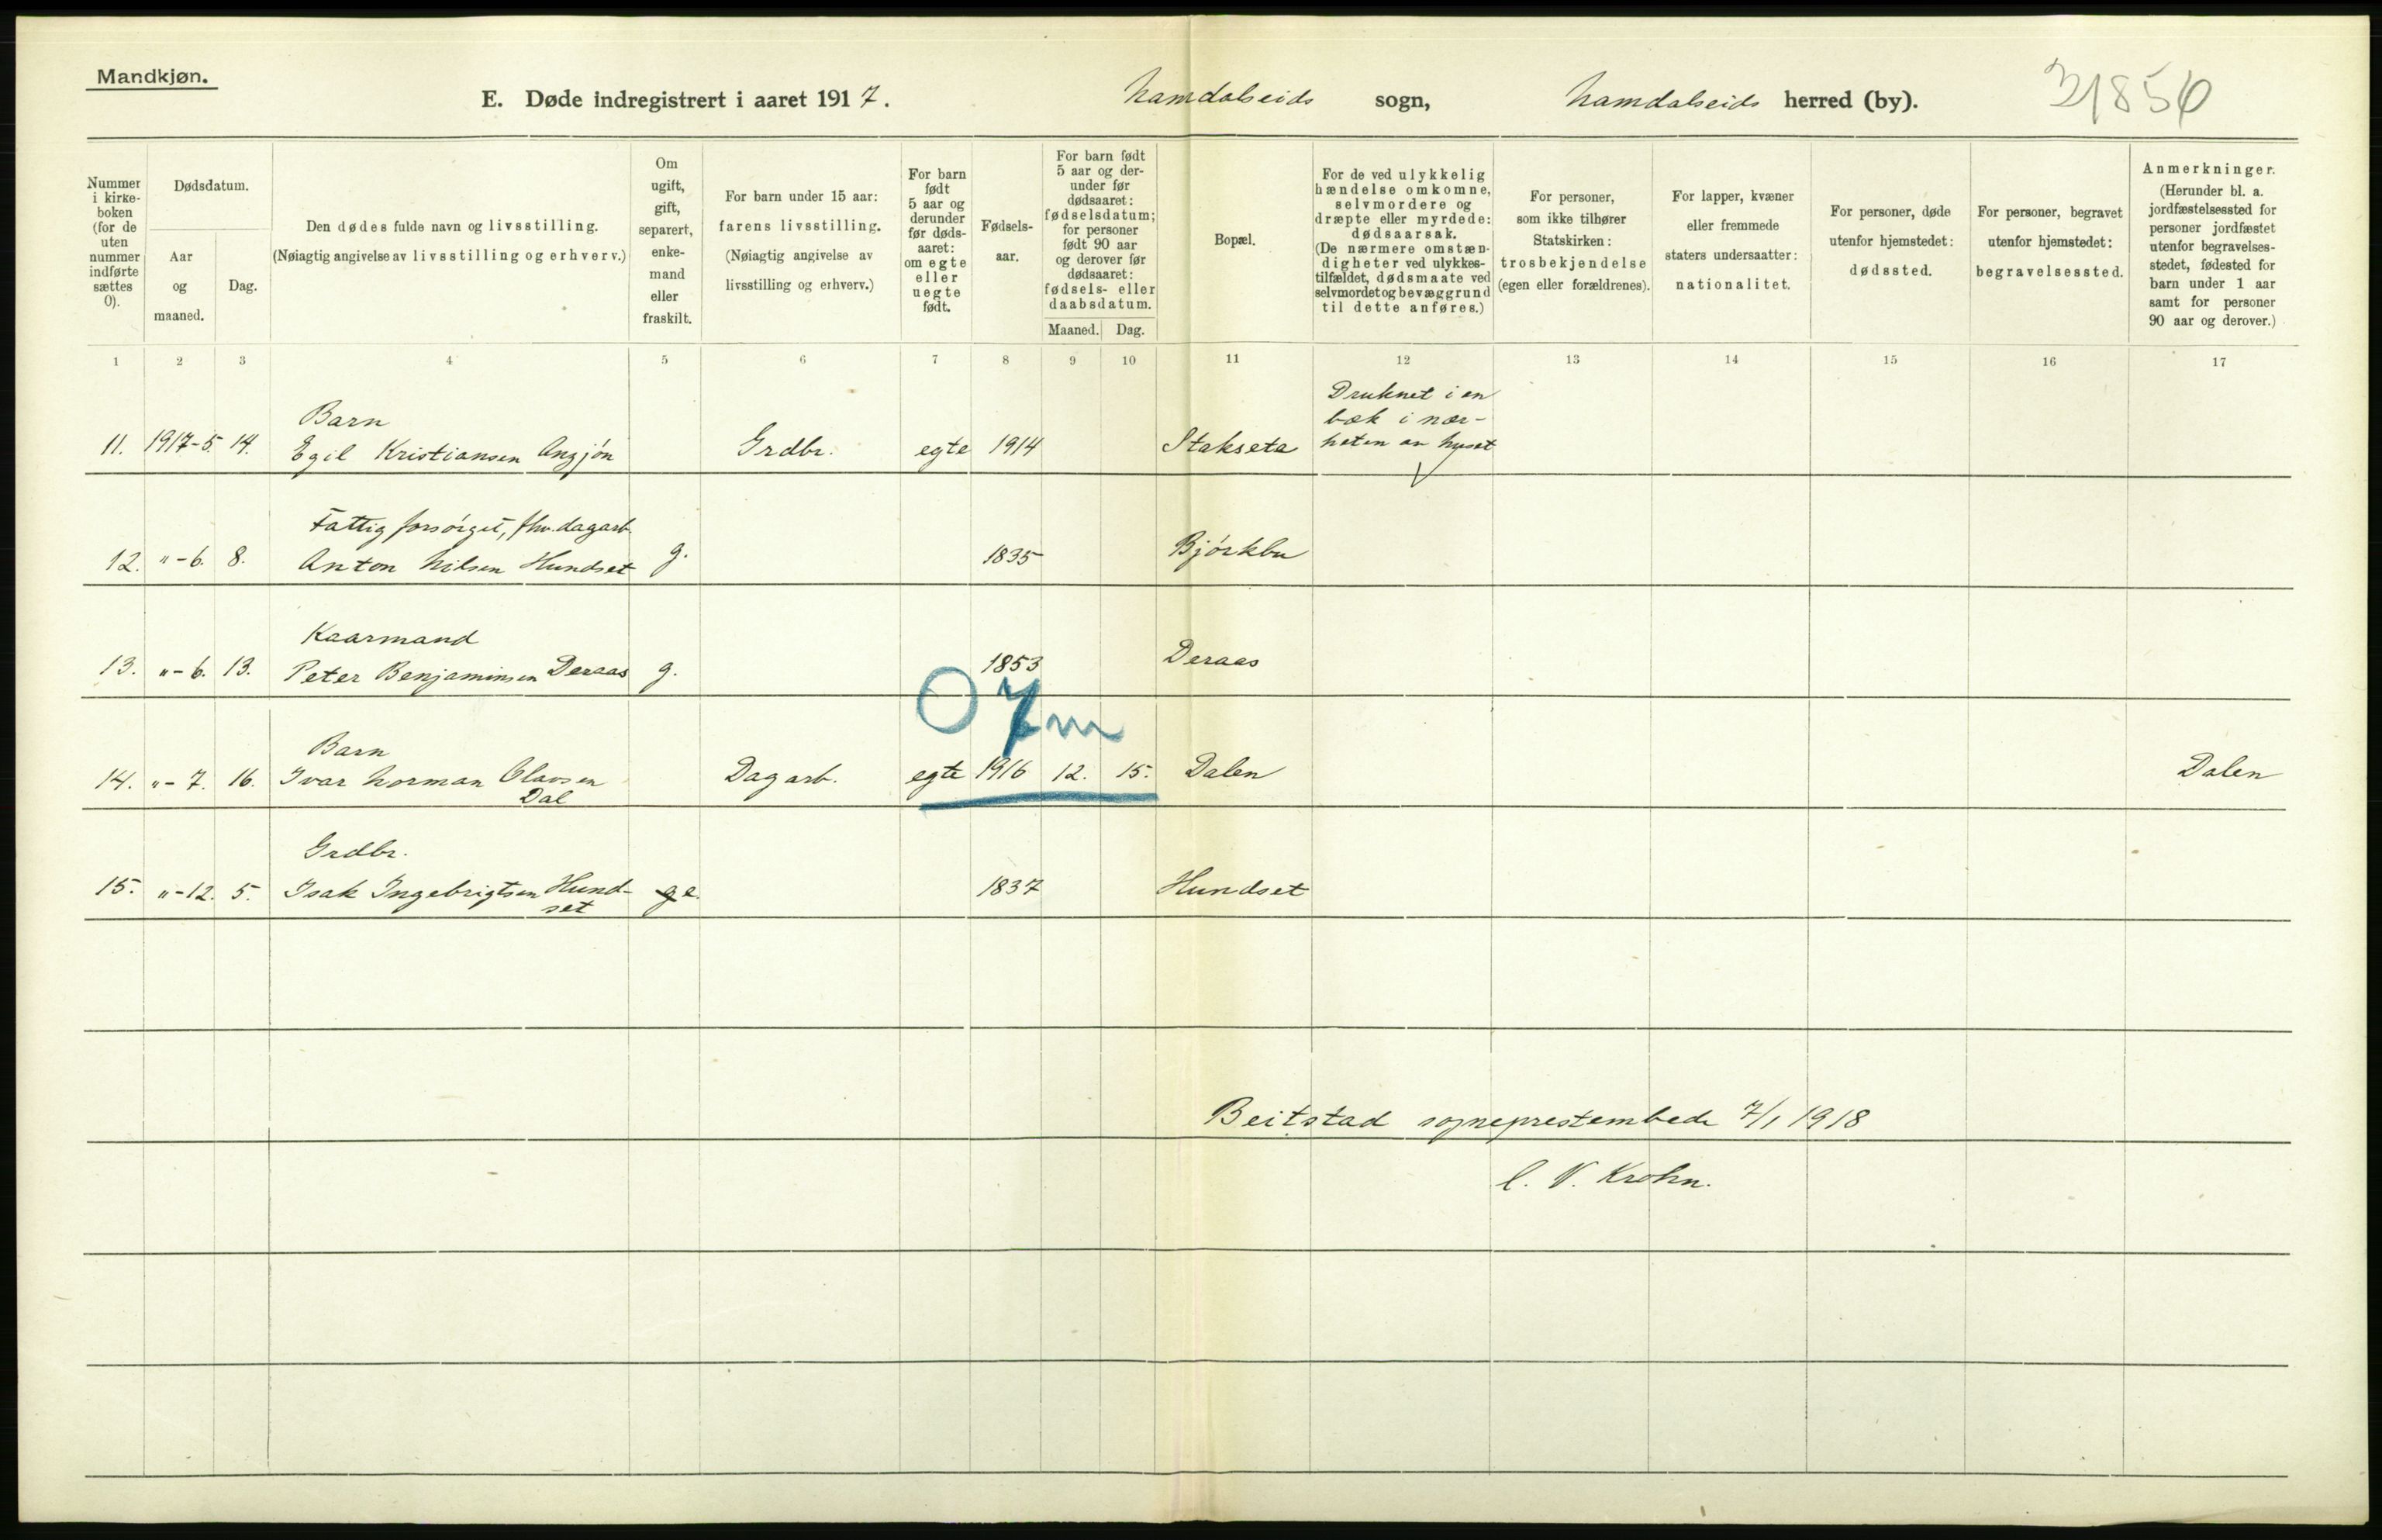 Mandkjøn.
E. Døde indregistrert i aaret 1917. Namdalseids sogn, Namdalseids herred (by).
Nummer i kirkeboken (for de uten nummer indførte sættes 0).
Dødsdatum.
Aar og maaned.
Dag.
Den dødes fulde navn og livsstilling.
(Nøiagtig angivelse av livsstilling og erhverv.)
Om ugift, gift, separert, enkemand eller fraskilt.
For barn under 15 aar:
farens livsstilling.
(Nøiagtig angivelse av livsstilling og erhverv.)
For barn født 5 aar og derunder før dødsaaret: om egte eller uegte født.
Fødselsaar.
For barn født 5 aar og derunder før dødsaaret: fødselsdatum; for personer født 90 aar og derover før dødsaaret: fødsels- eller daabsdatum.
Maaned. Dag.
Bopæl.
For de ved ulykkelig hændelse omkomne, selvmordere og dræpte eller myrdede: dødsaarsak.
(De nærmere omstændigheter ved ulykkestilfældet, dødsmaate ved selvmordet og bevæggrund til dette anføres.)
For personer, som ikke tilhører Statskirken: trosbekjendelse (egen eller forældrenes).
For lapper, kvæner eller fremmede staters undersaatter: nationalitet.
For personer, døde utenfor hjemstedet: dødssted.
For personer, begravet utenfor hjemstedet: begravelsessted.
Anmerkninger.
(Herunder bl. a. jordfæstelsessted for personer jordfæstet utenfor begravelsesstedet, fødested for barn under 1 aar samt for personer 90 aar og derover.)
1 2 3 4 5 6 7 8 9 10 11 12 13 14 15 16 17
Barn
11. 1917-5. 14. Egil Kristiansen Angjón Grdbr. egte 1914 Stakseta Druknet i en bæk i nær-heten av huset
Fattigforsórget, fhv. dagarb.
12. "-6. 8. Anton Nilsen Hundset g. 1835 Bjórkbu
Kaarmand
13. "-6. 13. Peter Benjaminsen Deraas g. 1853 Deraas
0 7 m
Barn
14. "-7. 16. Ivar Norman Olavsen Dal Dagarb. egte 1916 12. 15. Dalen Dalen
Grdbr.
15. "-12. 5. Isak Ingebrigtsen Hund-set e. 1837 Hundset
Beitstad sogneprestembede 7/1 1918
C. V. Krohn.